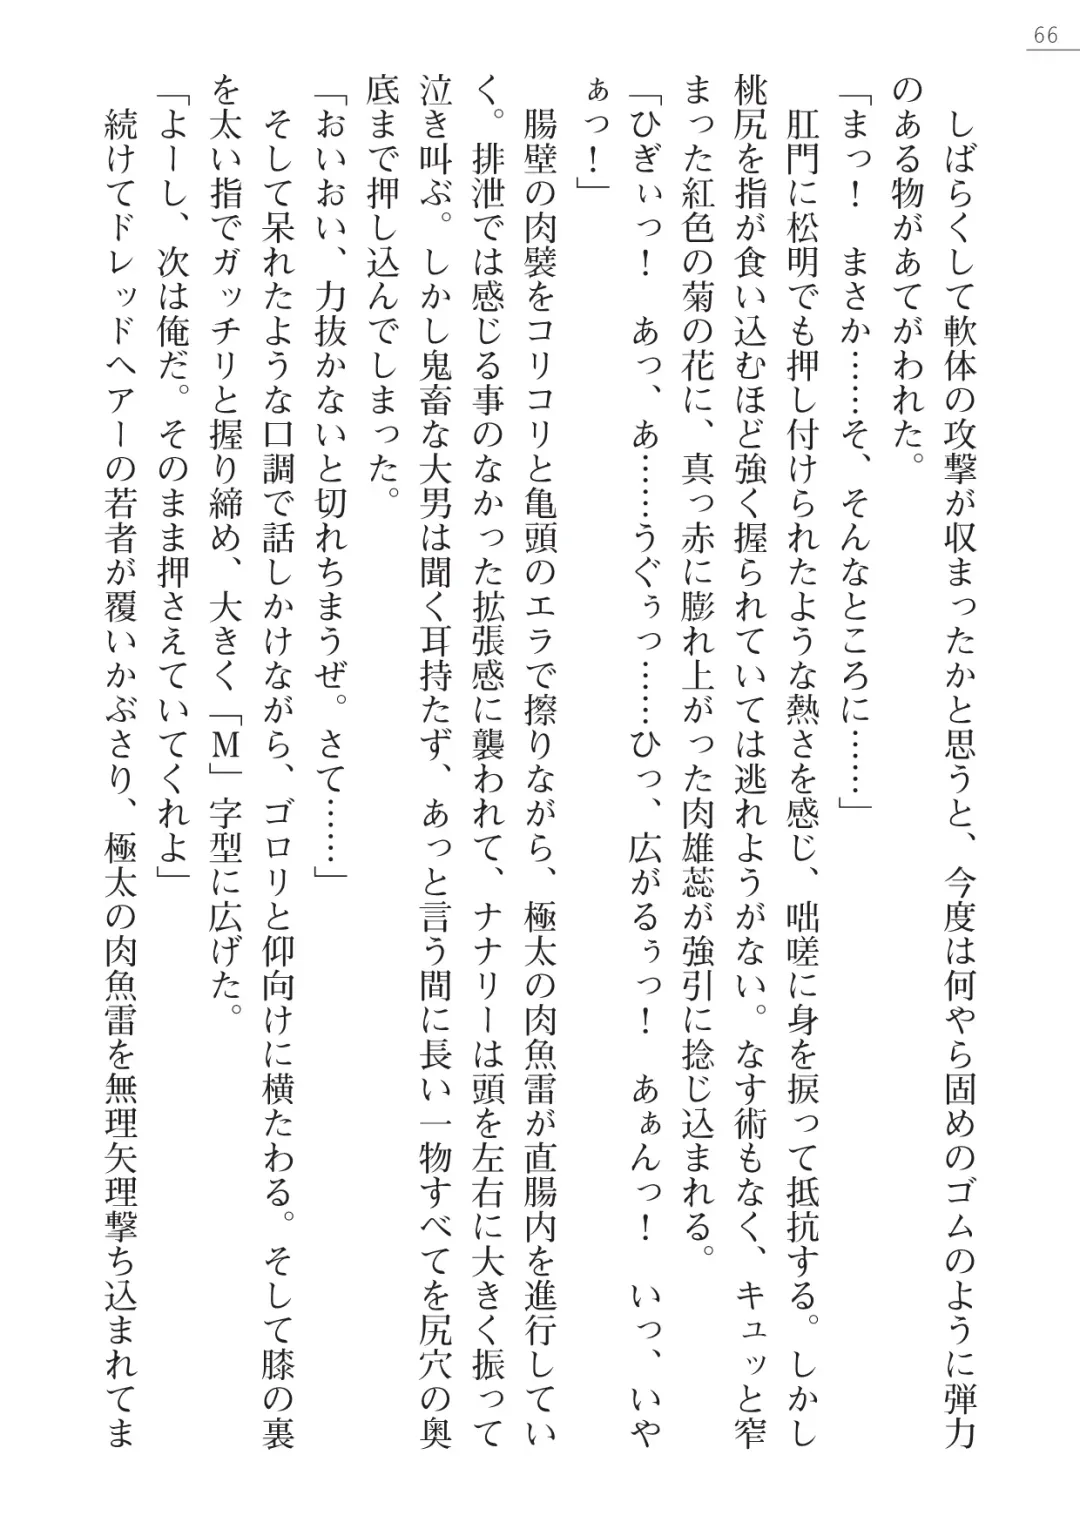 66
しばらくして軟体の攻撃が収まったかと思うと、今度は何やら固めのゴムのように弾力
のある物があてがわれた。
「まっ！　まさか……そ、そんなところに……」
肛門に松明でも押し付けられたような熱さを感じ、咄嗟に身を捩って抵抗する。しかし
桃尻を指が食い込むほど強く握られていては逃れようがない。なす術もなく、キュッと窄
まった紅色の菊の花に、真っ赤に膨れ上がった肉雄蕊が強引に捻じ込まれる。
「ひぎぃっ！　あっ、あ……うぐぅっ……ひっ、広がるぅっ！　あぁんっ！　いっ、いや
ぁっ！」
腸壁の肉襞をコリコリと亀頭のエラで擦りながら、極太の肉魚雷が直腸内を進行してい
く。排泄では感じる事のなかった拡張感に襲われて、ナナリーは頭を左右に大きく振って
泣き叫ぶ。しかし鬼畜な大男は聞く耳持たず、あっと言う間に長い一物すべてを尻穴の奥
底まで押し込んでしまった。
「おいおい、力抜かないと切れちまうぜ。さて……」
そして呆れたような口調で話しかけながら、ゴロリと仰向けに横たわる。そして膝の裏
を太い指でガッチリと握り締め、大きく「M」字型に広げた。
「よーし、次は俺だ。そのまま押さえていてくれよ」
続けてドレッドヘアーの若者が覆いかぶさり、極太の肉魚雷を無理矢理撃ち込まれてま